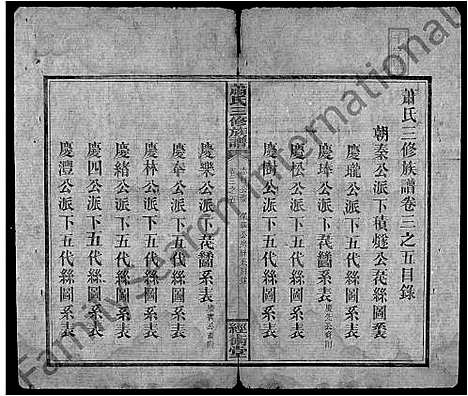 蕭氏三修族譜卷三之五目錄
朝秦公派下積燧公花絲圖系表
慶瓏公派下五代絲圖系表
慶璋公派下花齒系表
慶松公派下五代絲圖系表
慶樹公派下五代絲圖系表
蕭氏三修族譜
經術堂
慶樂公派下花齒系表
慶華公派下五代絲圖系表
慶林公派下五代絲圖系表
慶緒公派下五代絲圖系表
慶四公派下五代絲圖系表
慶澧公派下五代絲圖系表
FamilySearch International